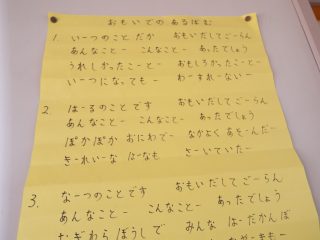 おもいでの あるばむ
1. いーつのことだか おもいだしてごーらん
あんなことー こんなことー あったでしょう
うれしかったことー おもしろかったことー
いーつになってもー わーすれーないー
2. はーるのことです おもいだしてごーらん
あんなことー こんなことー あったでしょう
ぽかぽか おにわでー なかよく あそーんだー
きーれいーな はーなも さーいていたー
3. なーつのことです おもいだしてごーらん
あんなことー こんなことー あったでしょう
むぎわらぼうしで みんな はーだかんぼ